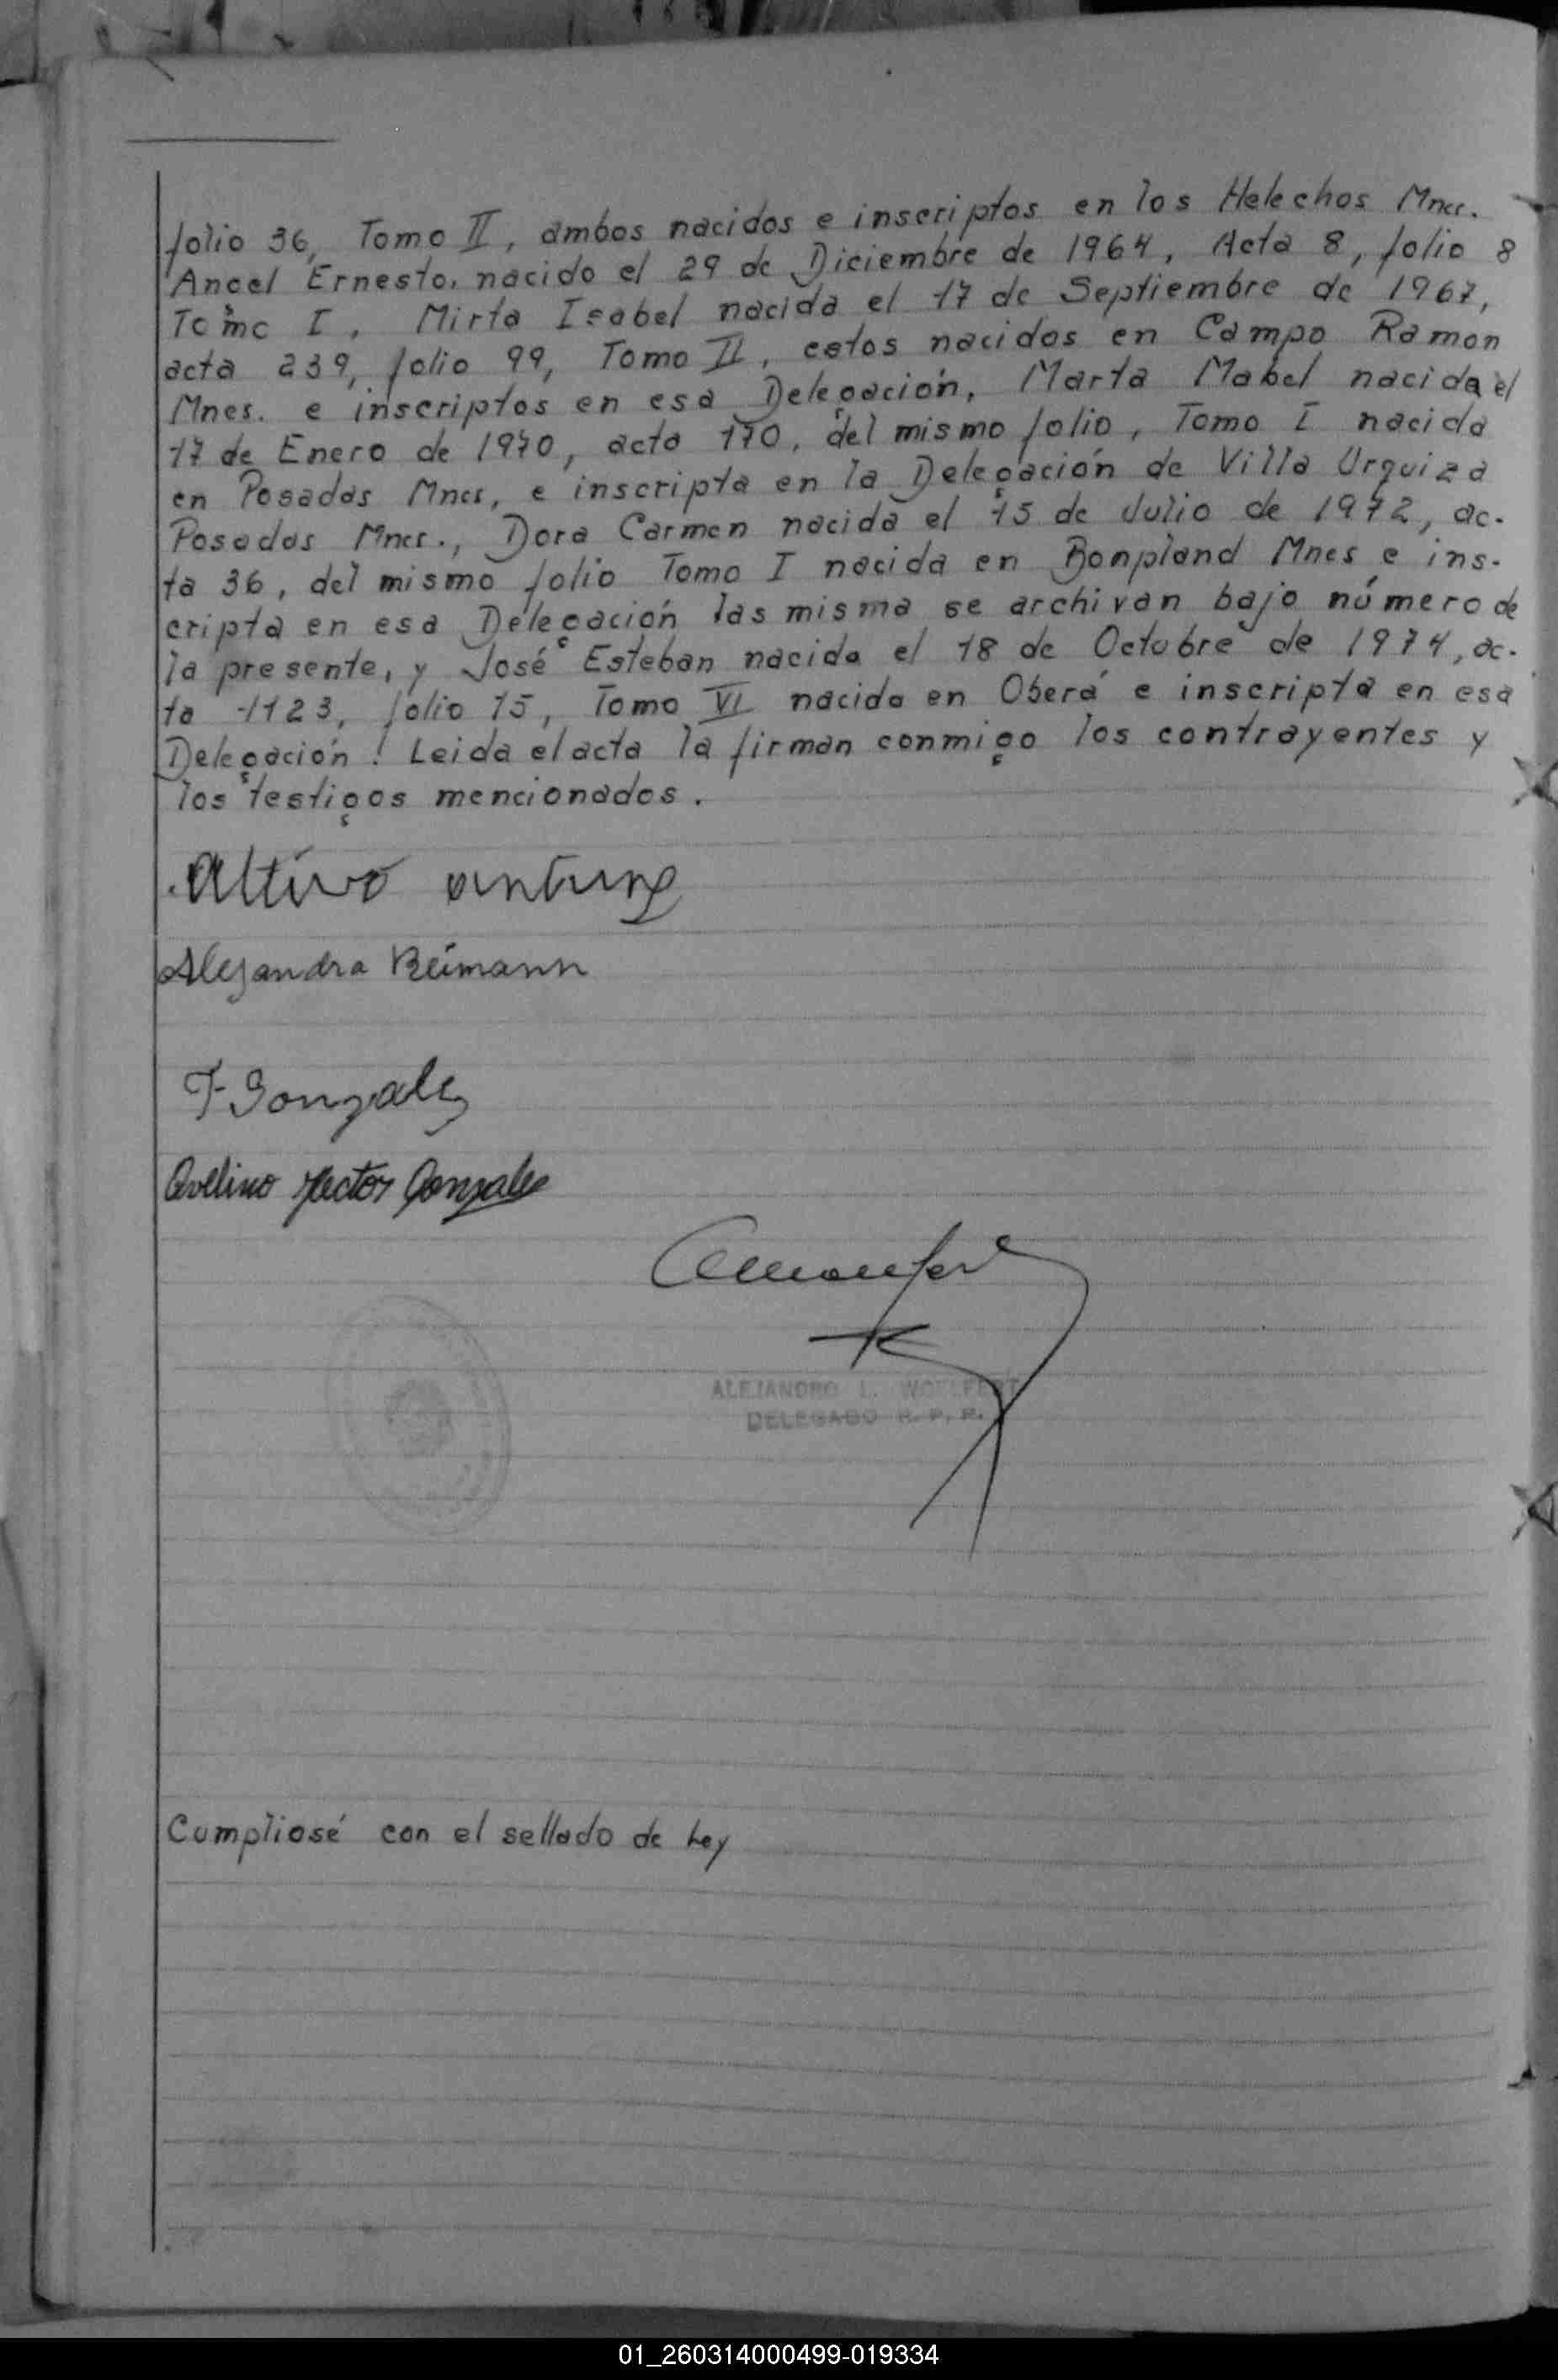 folio 36, Tomo II, ambos nacidos e inscriptos en los Helechos Mnes.
Angel Ernesto, nacido el 29 de Diciembre de 1964, Acta 8, folio 8
Tomo I, Mirta Isabel nacida el 17 de Septiembre de 1967,
acta 239, folio 99, Tomo II, estos nacidos en Campo Ramon
Mnes. e inscriptos en esa Delegación, Marta Mabel nacida el
17 de Enero de 1970, acta 170, del mismo folio, Tomo I nacida
en Posadas Mnes, e inscripta en la Delegación de Villa Urquiza
Posadas Mnes., Dora Carmen nacida el 15 de Julio de 1972, ac-
ta 36, del mismo folio Tomo I nacida en Bonpland Mnes e ins-
cripta en esa Delegación las misma se archivan bajo número de
la presente, y José Esteban nacido el 18 de Octubre de 1974, ac-
ta 1123, folio 15, Tomo VI nacido en Oberá e inscripta en esa
Delegación! Leida el acta la firman conmigo los contrayentes y
los testigos mencionados.
Altivo
Alejandra Reimann
F Gonzalez
Avelino Hector Gonzalez
ALEJANDRO L. WOELFERT
DELEGADO R. P. P.
Cumpliosé con el sellado de Ley
01_260314000499-019334